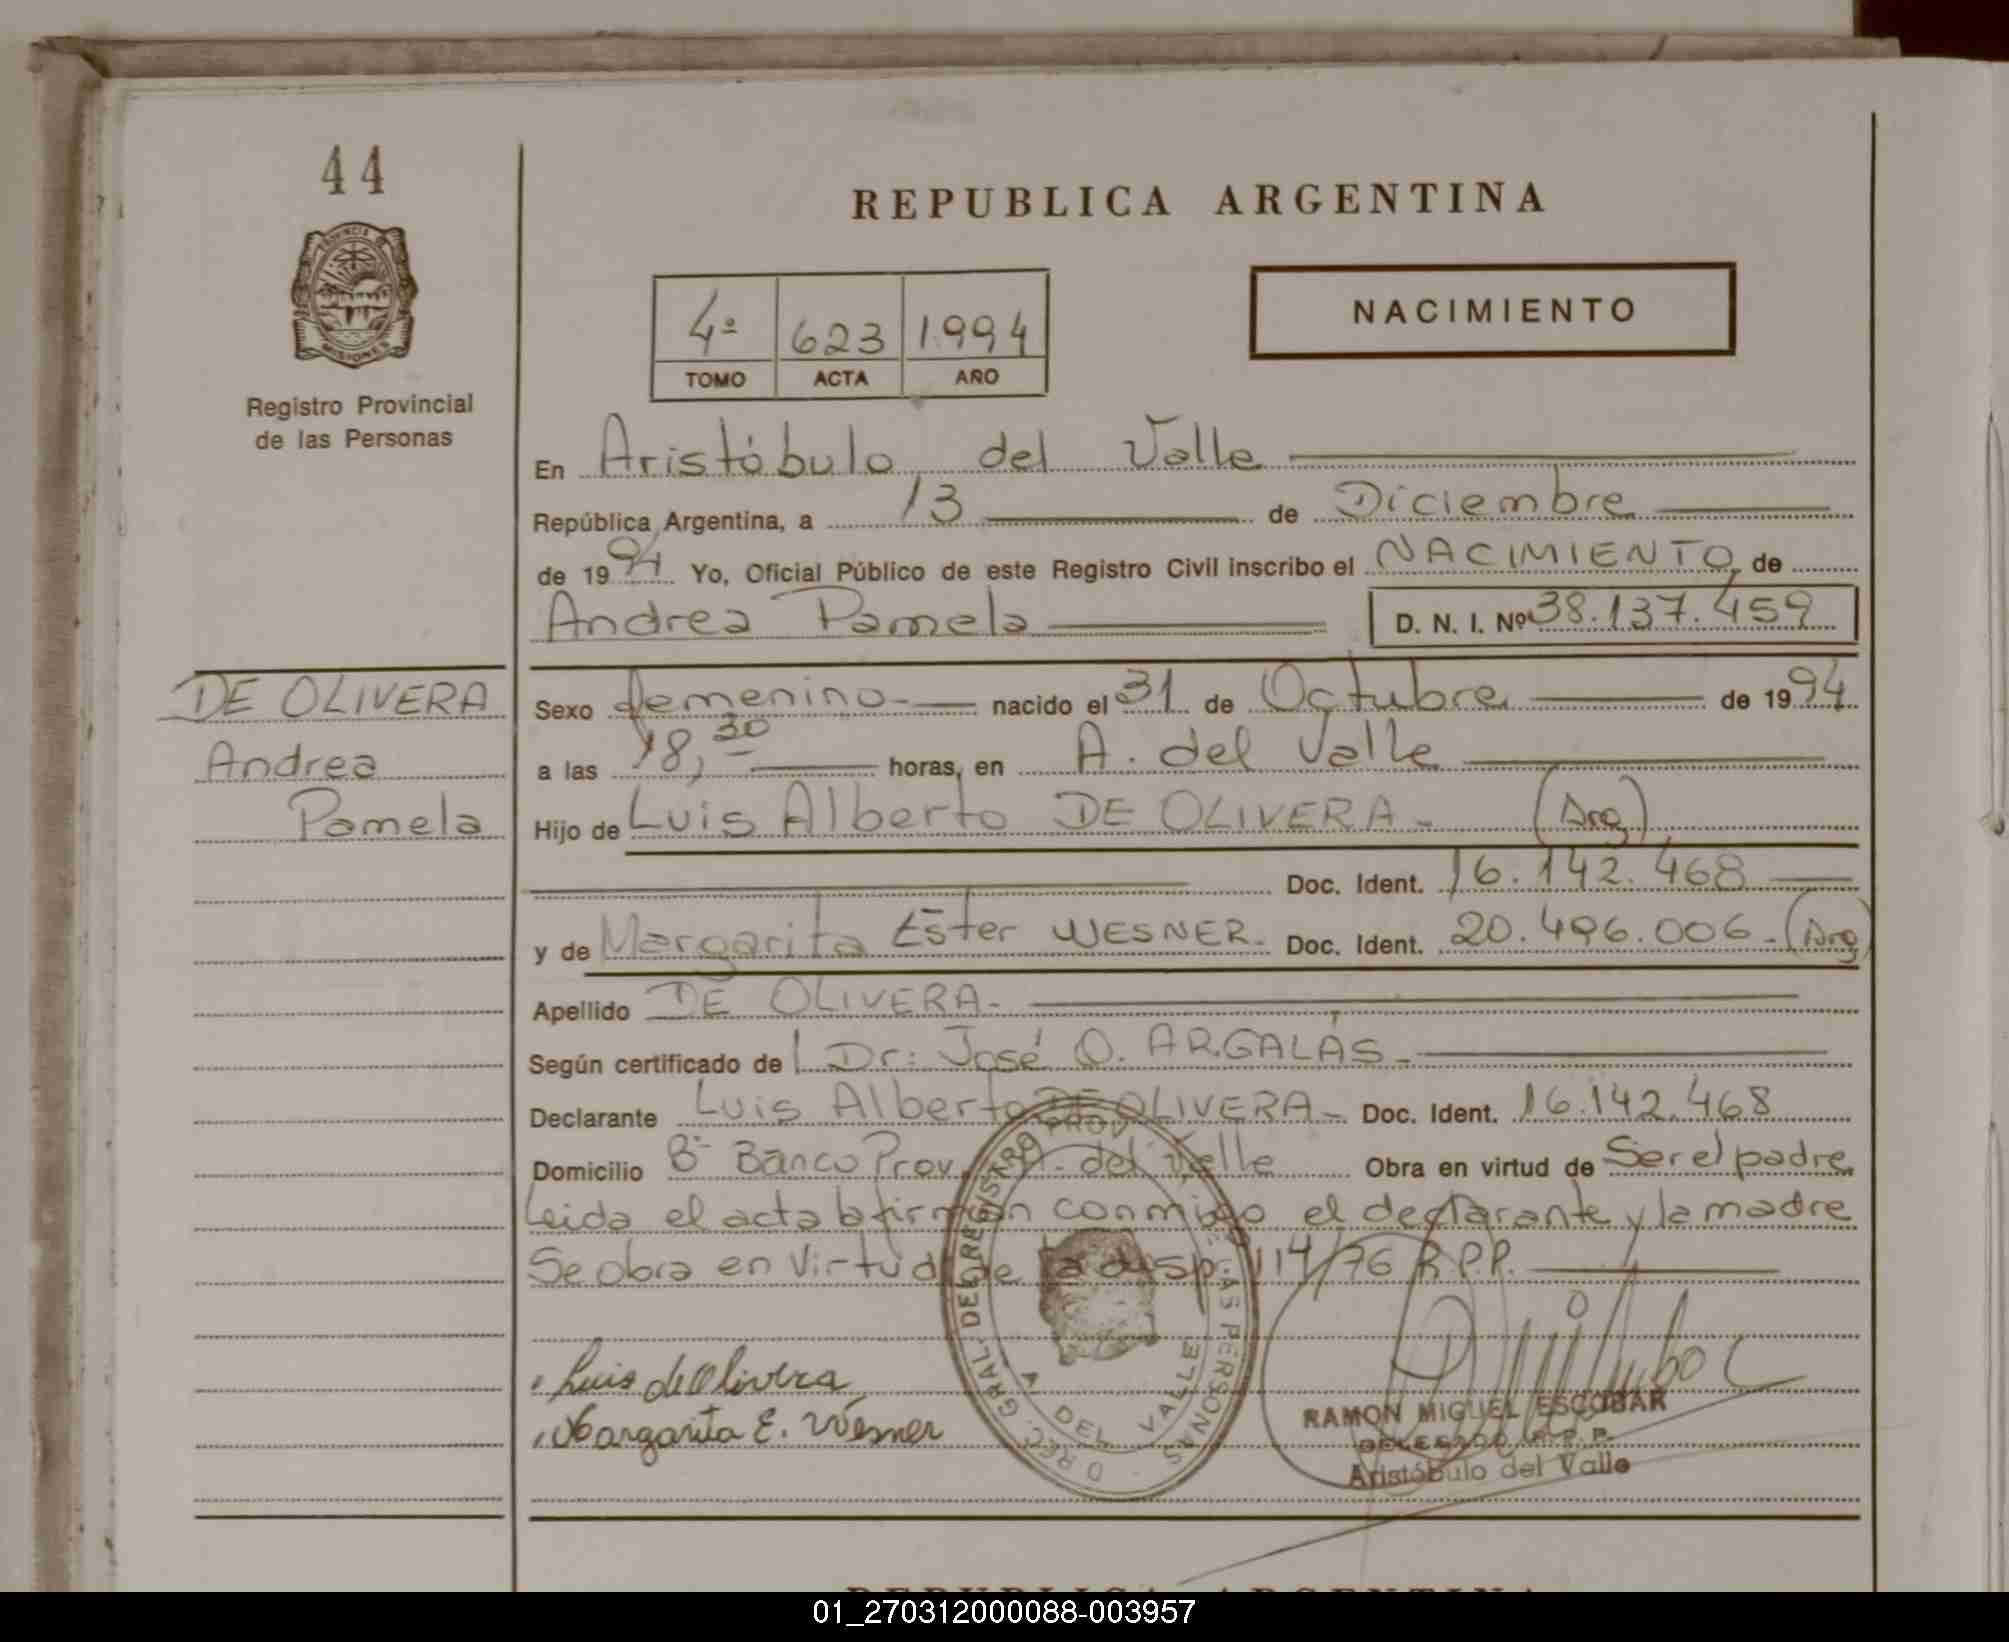 44
PROVINCIA DE
MISIONES
Registro Provincial
de las Personas
REPUBLICA ARGENTINA
NACIMIENTO
4º 623 1.994
TOMO ACTA AÑO
En Aristóbulo del Valle
República Argentina, a 13 de Diciembre
de 1994 Yo, Oficial Público de este Registro Civil inscribo el NACIMIENTO de
Andrea Pamela D. N. I. Nº 38.137.459
DE OLIVERA
Andrea
Pamela
Sexo femenino nacido el 31 de Octubre de 1994
a las 18,30 horas, en A. del Valle
Hijo de Luis Alberto DE OLIVERA - (Arg)
Doc. Ident. 16.142.468
y de Margarita Ester WESNER - Doc. Ident. 20.496.006 - (Arg)
Apellido DE OLIVERA -
Según certificado de l Dr: José O. ARGALÁS -
Declarante Luis Alberto DE OLIVERA - Doc. Ident. 16.142.468
Domicilio Bº Banco Prov. A. del Valle Obra en virtud de Ser el padre
Leida el acta la firman conmigo el declarante y la madre
Se obra en Virtud de la disp. 114/76 R.P.P.
Luis de Olivera
Margarita E. Wesner
DIREC. GRAL. DEL REGISTRO PROV. DE LAS PERSONAS
A. DEL VALLE
RAMON MIGUEL ESCOBAR
DELEGADO R.P.P.
Aristóbulo del Valle
REPUBLICA ARGENTINA
01_270312000088-003957